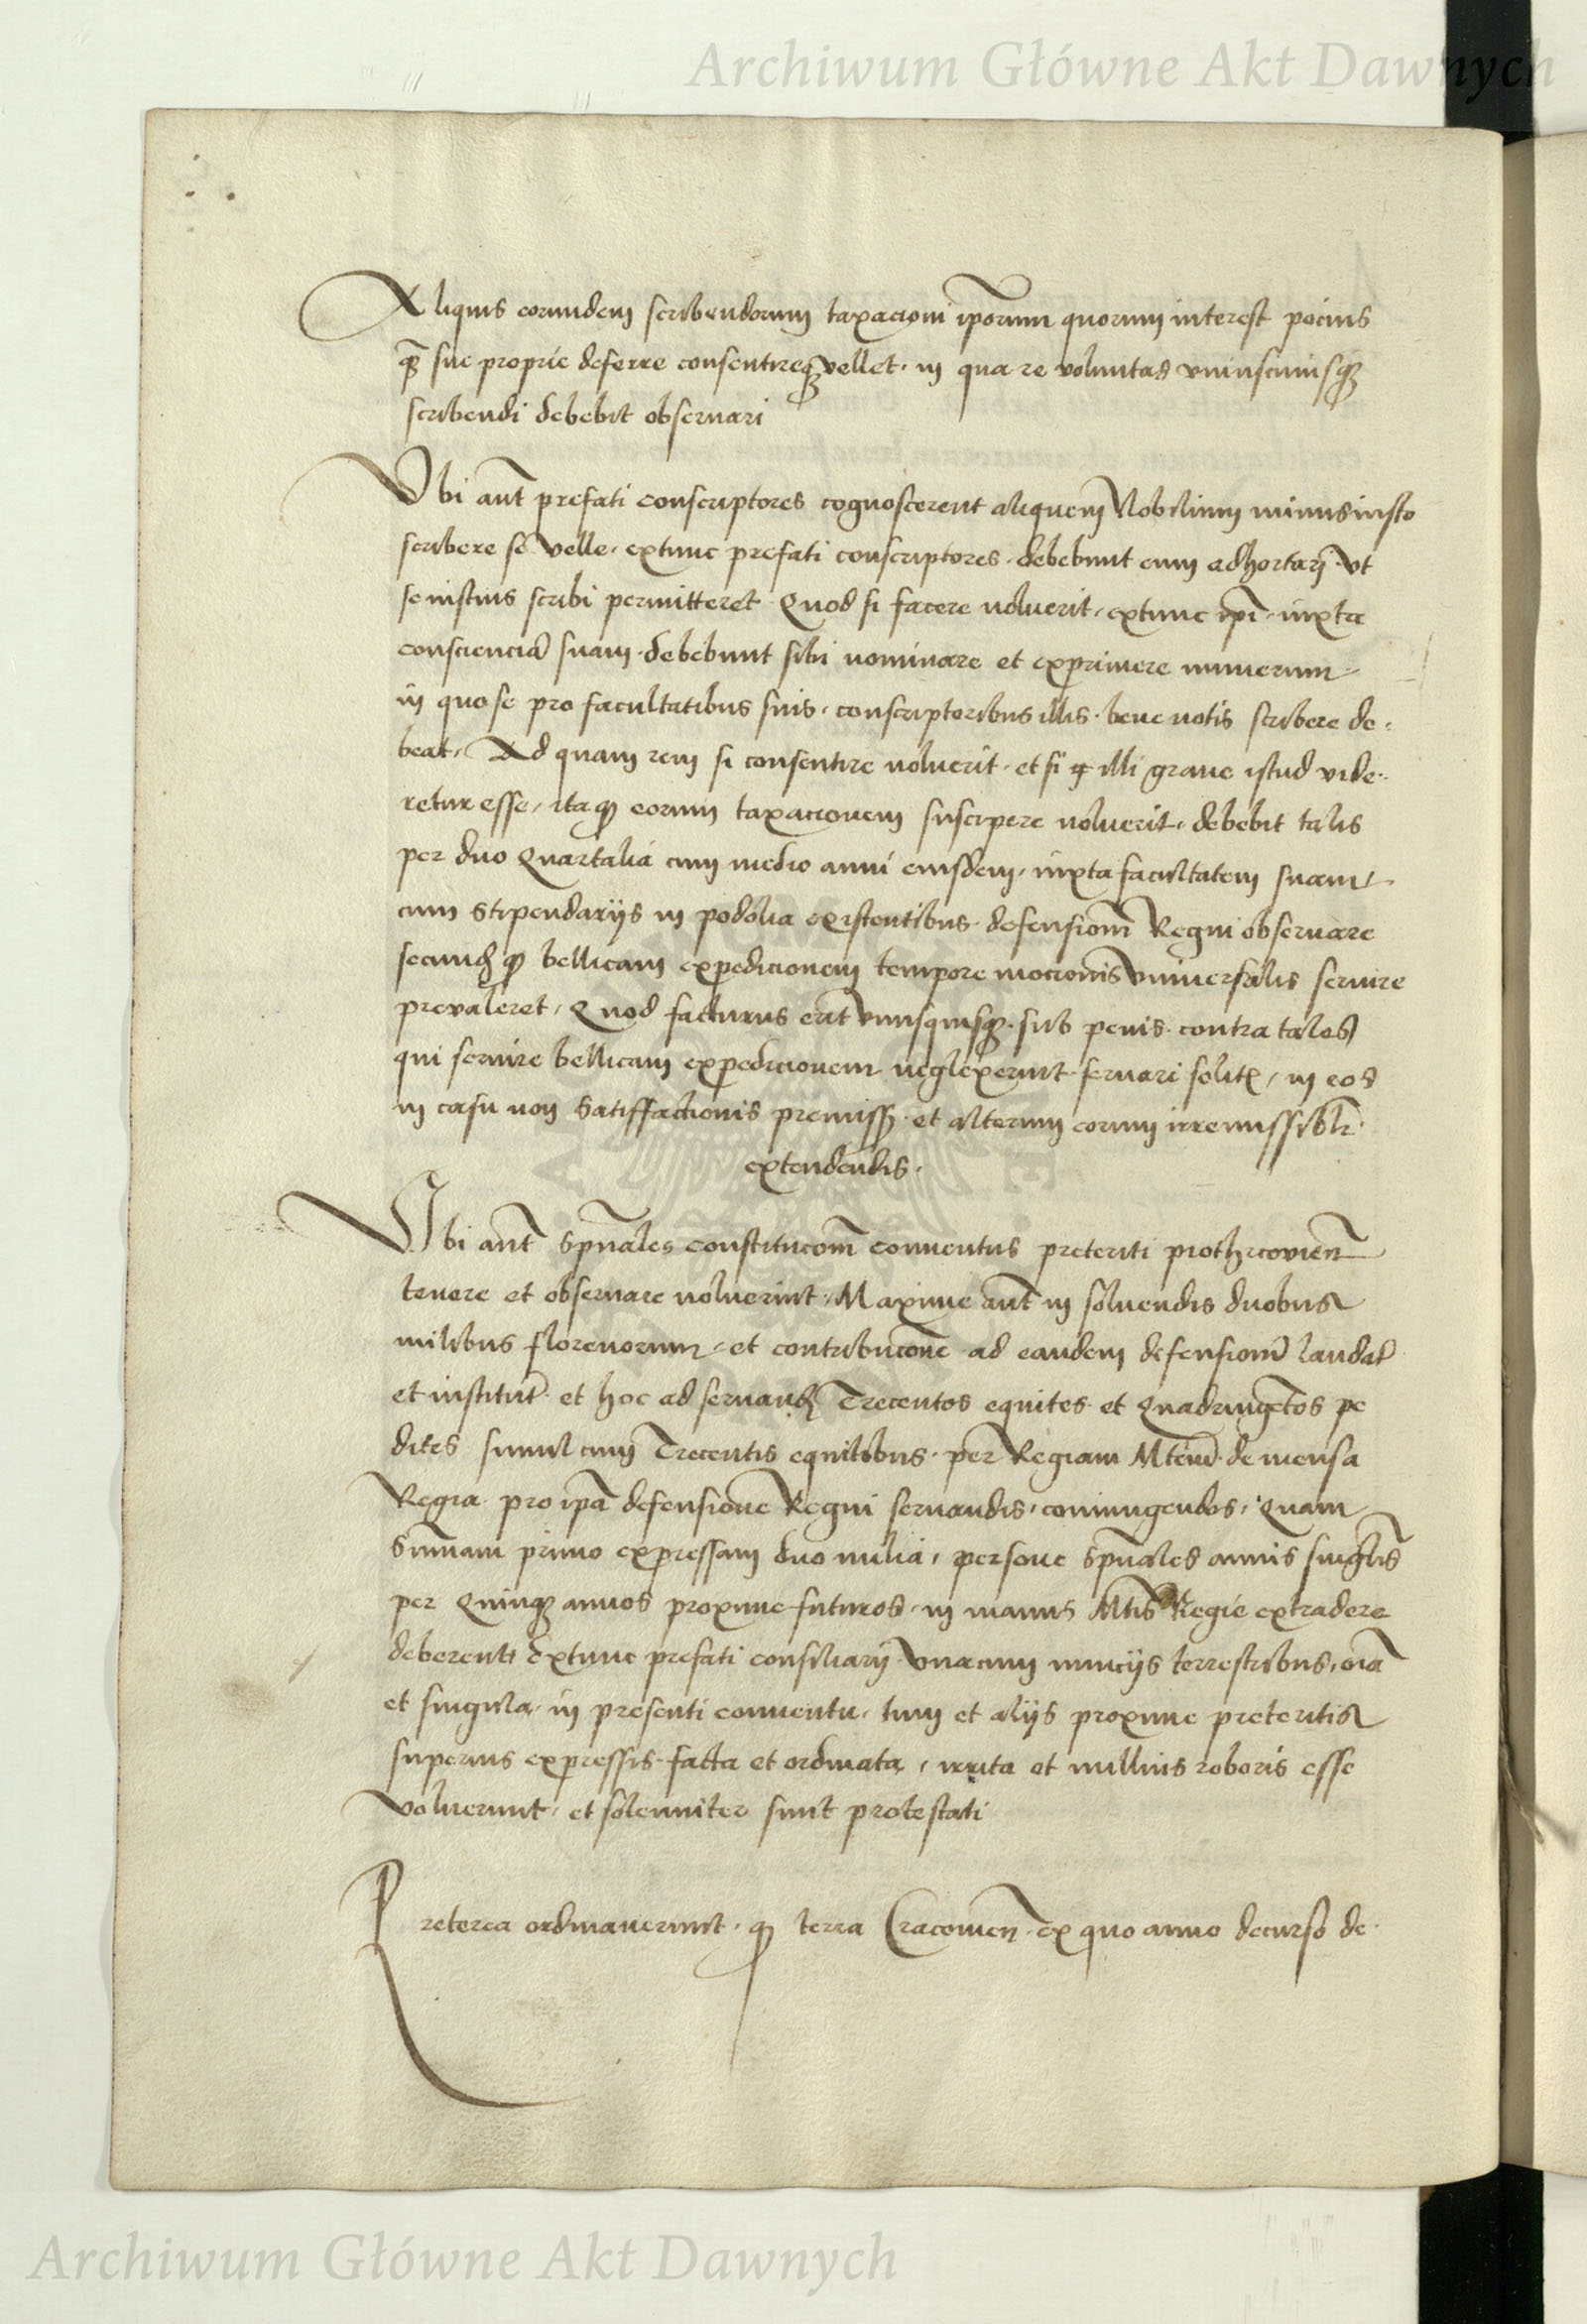 Archiwum Główne Akt Dawnych
Aliquis eorundem scribendorum taxacioni ip̃orum quorum interest pocius
q̃ sue proprie deferre consentireq₃ vellet · in qua re voluntas vniuscuiusq₃
scribendi debebit obseruari
Vbi aut̃ prefati conscriptores cognoscerent aliquem Nobilium minus iusto
scribere se velle, extunc prefati conscriptores · debebunt eum adhortari · vt
se iustius scribi permitteret Quod si facere noluerit, extunc ip̃i · iuxta
conscienciã suam · debebunt sibi nominare et exprimere numerum
in quo se pro facultatibus suis, conscriptoribus illis · bene notis scribere de,
beat, Ad quam rem si consentire noluerit · et si q̃ illi graue istud vide,
retur esse, itaq₃ eorum taxacionem suscipere noluerit, debebit talis
per duo Quartalia cum medio anni eiusdem, iuxta facultatem suam
cum Stipendarijs in podolia existentibus · defensionẽ Regni obseruare
secund̃ q₃ bellicam expedicionem tempore mocionis vniuersalis seruire
preualeret, Quod facturus erit vnusquisq₃ · sub penis · contra tales
qui seruire bellicam expedicionem neglexerint · seruari solit̃, in eos
in casu non Satisfactionis premiss̃ · et alterum eorum irremissibilr̃
extendendis,
Vbi aut̃ Sp̃uales constitucionẽ conuentus preteriti piothrcouien̄
tenere et obseruare noluerint, Maxime aut̃ in soluendis duobus
milibus florenorum, et contribucione ad eandem defensionẽ laudat̃
et institut̃ · et hoc ad seruand̃ Trecentos equites et Quadringẽtos pe
dites simul cum Trecentis equitibus · per Regiam Mtem̃ · de mensa
Regia pro ip̃a defensione Regni seruandis, coniungendos, Quam
Sum̃am primo expressam duo milia, persone Sp̃uales annis singl̃is
per Quinq₃ annos proxime futuros, in manus Mtis̃ Regie extradere
deberent Extunc prefati consiliarij vnacum nuncijs terrestribus, oĩa
et singula, in presenti conuentu, tum et alijs proxime preteritis
superius expressis · facta et ordinata, irrita et nullius roboris esse
voluerunt, et solenniter sunt protestati
Preterea ordinauerunt, q₃ terra Cracouien̄ · ex quo anno decurso de
Archiwum Główne Akt Dawnych